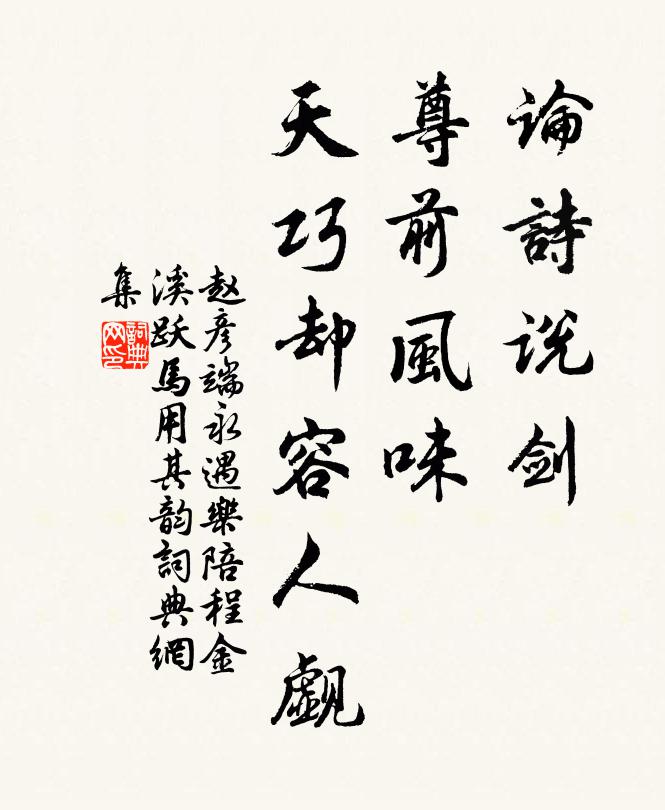 論詩説劍
尊前風味
天巧却容人覷
赵彦端永遇樂陪程金
溪跃馬用其韵詞典網
集
詞典
网印